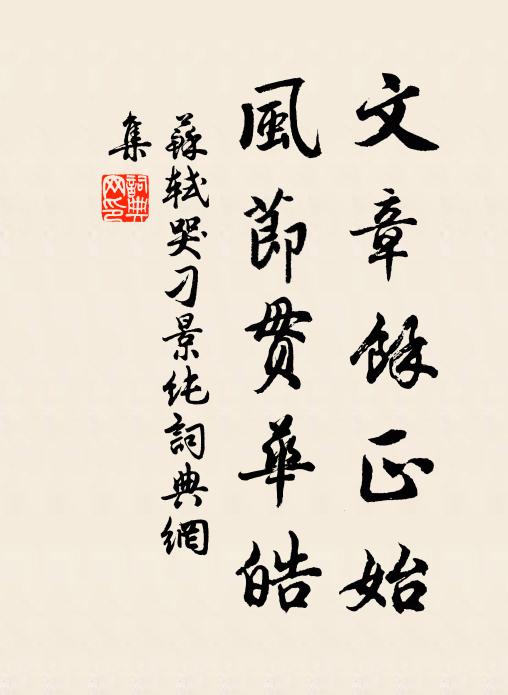 文章餘正始
風節貫華皓
蘇軾哭刁景純詞典網
集
詞典
网印